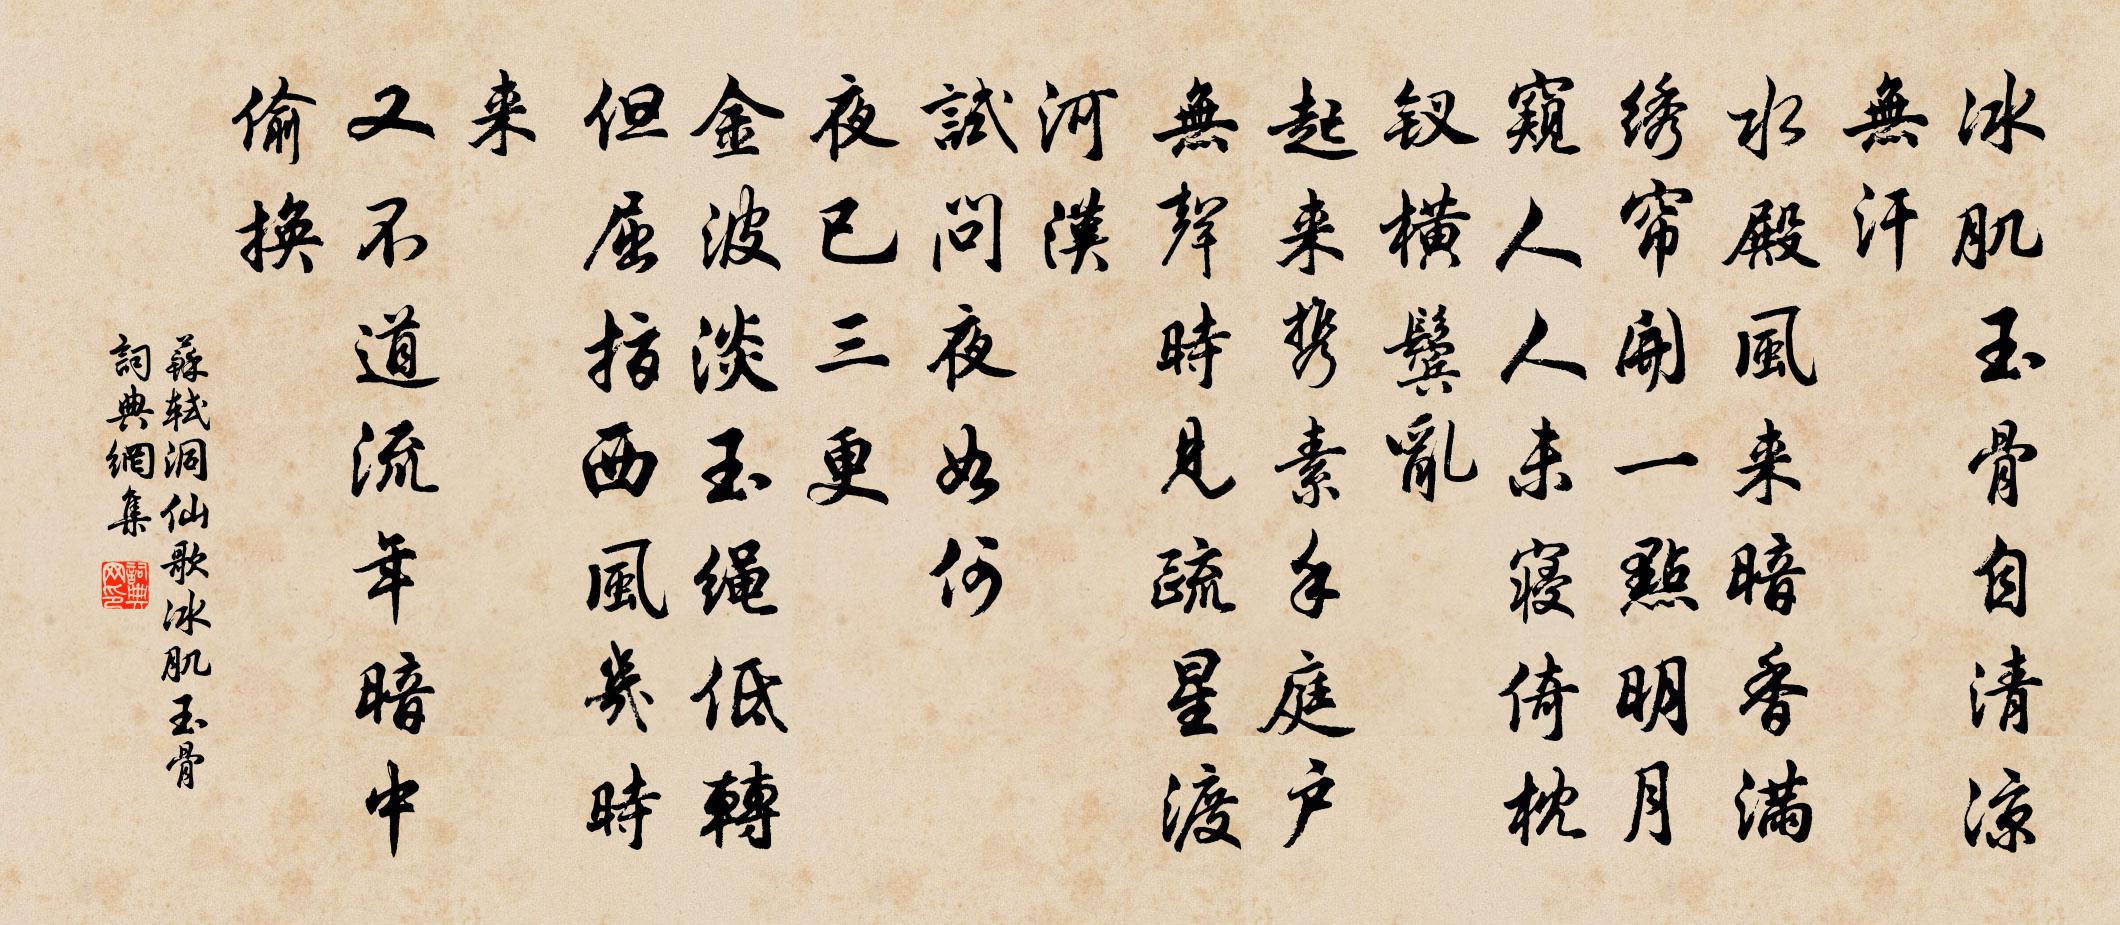 冰肌玉骨自清凉
無汗
水殿風来暗香满
绣帘開一點明月
窺人人未寝倚枕
钗横鬓亂
起来携素手庭户
無聲時見疏星渡
河漢
試問夜如何
夜已三更
金波淡玉绳低轉
但屈指西風幾時
来
又不道流年暗中
偷换
蘇軾洞仙歌冰肌玉骨
詞典網集
詞典网印